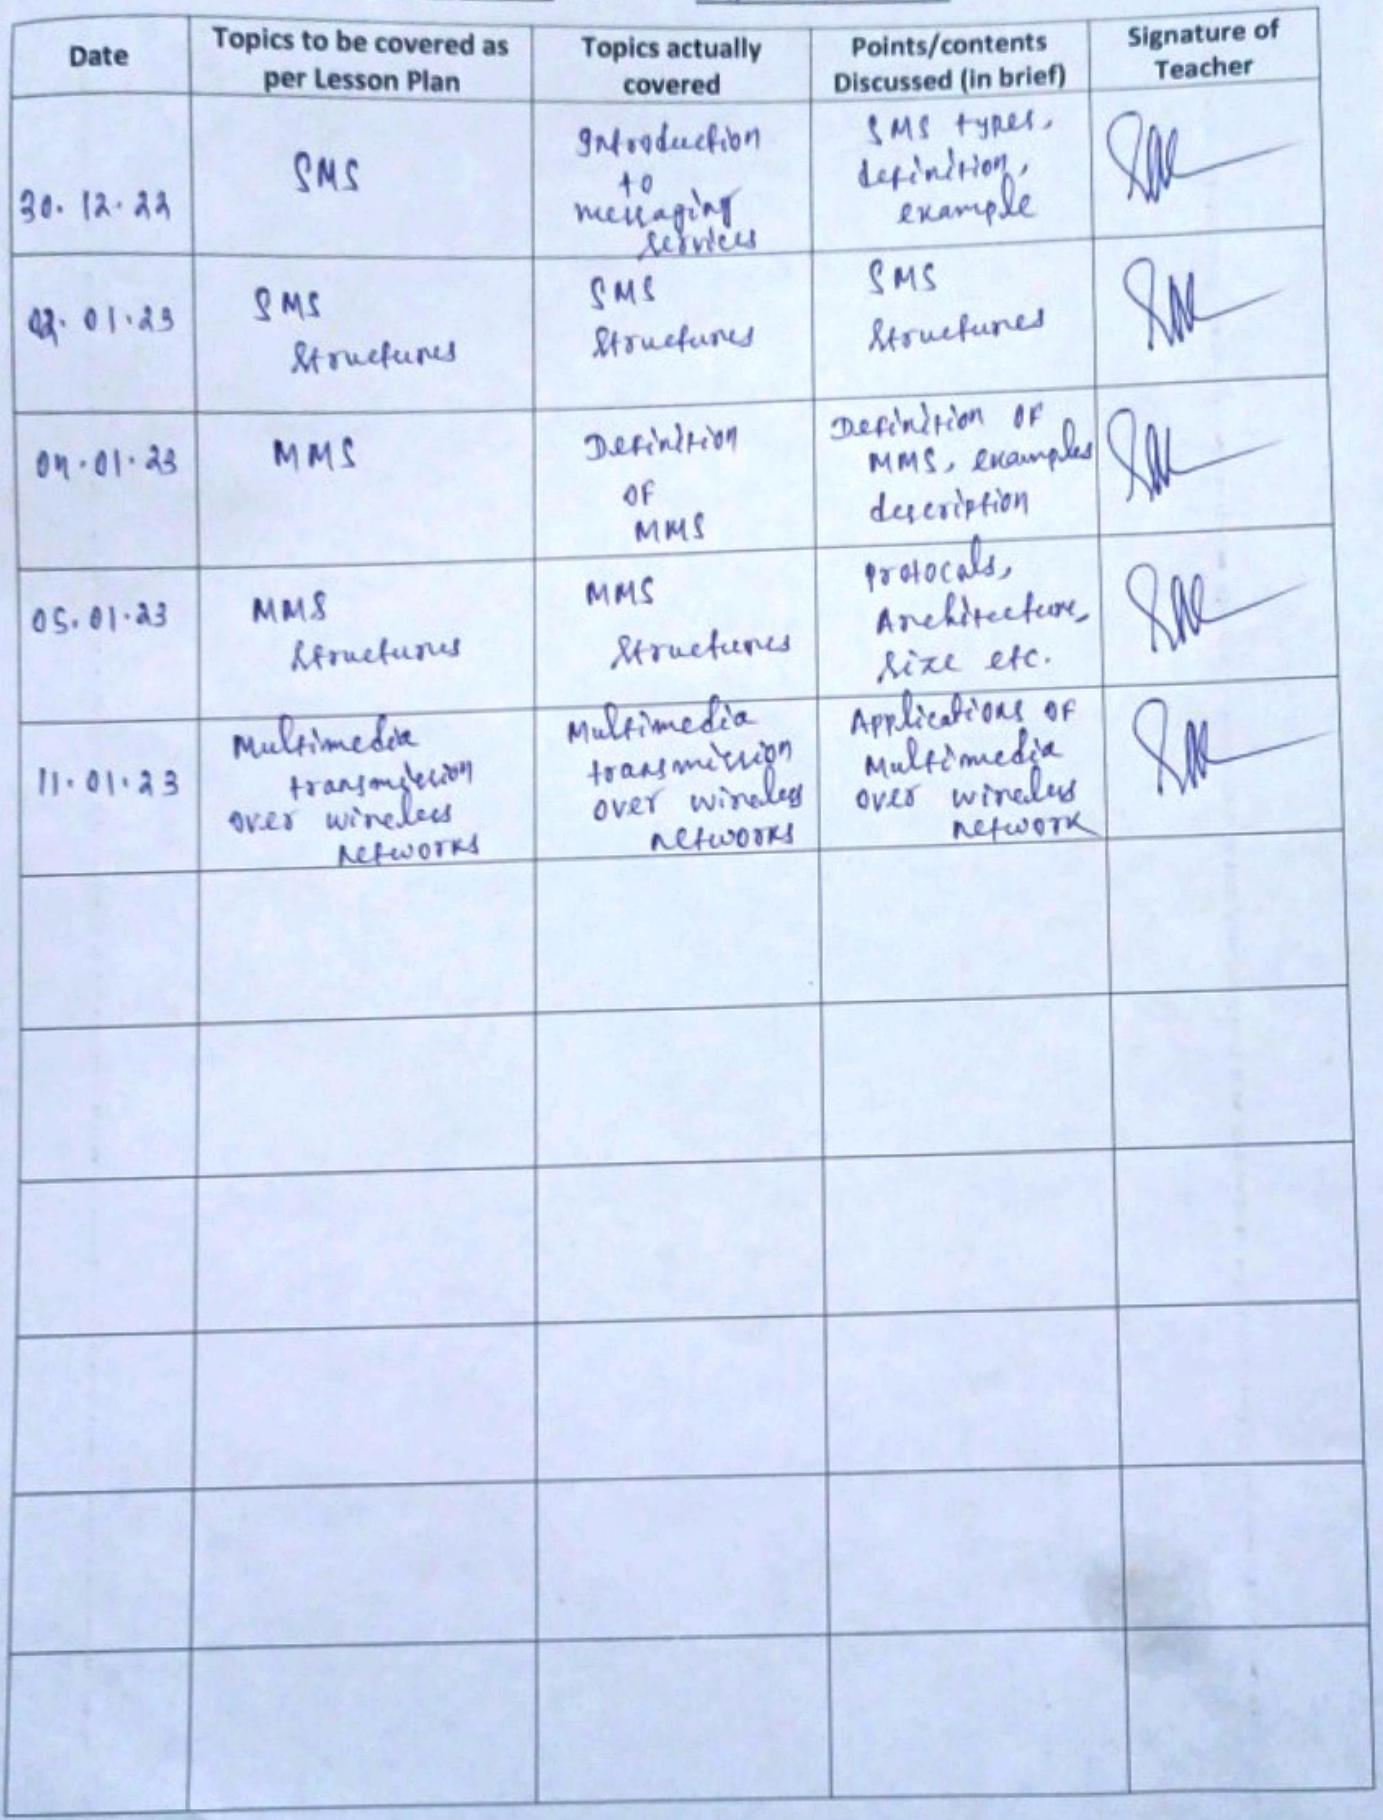 Date
Topics to be covered as
per Lesson Plan
Topics actually
covered
Points/contents
Discussed (in brief)
Signature of
Teacher
30.12.22
SMS
Introduction
to
messaging
services
SMS types,
definition,
example
02.01.23
SMS
Structures
SMS
Structures
SMS
Structures
04.01.23
MMS
Definition
OF
MMS
Definition OF
MMS, examples
description
05.01.23
MMS
Structures
MMS
Structures
protocals,
Architecture,
size etc.
11.01.23
Multimedia
transmission
over wireless
networks
Multimedia
transmission
over wireless
networks
Applications OF
Multimedia
over wireless
network